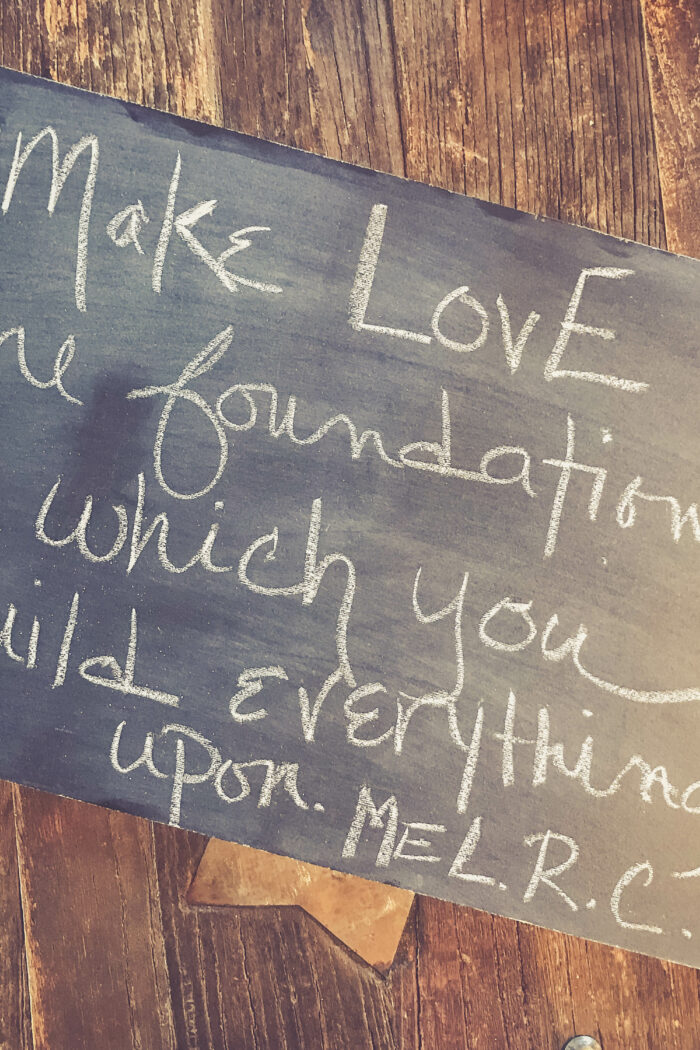 Make Love
he foundation
which you
uild everything
upon. MEL.R.C.